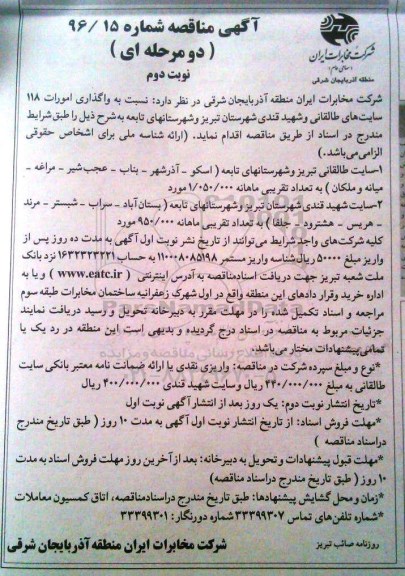 آگهی مناقصه شماره ۱۵ /۹۶
( دو مرحله ای )
نوبت دوم
شرکت مخابرات ایران
(سهامی عام)
منطقه آذربایجان شرقی
شرکت مخابرات ایران منطقه آذربایجان شرقی در نظر دارد: نسبت به واگذاری امورات ۱۱۸
سایت‌های طالقانی وشهید قندی شهرستان تبریز وشهرستانهای تابعه به شرح ذیل را طبق شرایط
مندرج در اسناد از طریق مناقصه اقدام نماید. (ارائه شناسه ملی برای اشخاص حقوقی
الزامی‌می‌باشد.)
۱-سایت طالقانی تبریز وشهرستانهای تابعه ( اسکو - آذرشهر - بناب - عجب‌شیر - مراغه -
میانه و ملکان ) به تعداد تقریبی ماهانه ۱/۰۵۰/۰۰۰مورد
۲-سایت شهید قندی شهرستان تبریز وشهرستانهای تابعه ( بستان‌آباد - سراب - شبستر - مرند
- هریس - هشترود - جلفا ) به تعداد تقریبی ماهانه ۹۵۰/۰۰۰مورد
کلیه شرکت‌های واجد شرایط می‌توانند از تاریخ نشر نوبت اول آگهی به مدت ده روز پس از
واریز مبلغ ۵۰۰۰۰ ریال‌شناسه واریز مستمر ۱۱۰۰۰۸۰۸۵۱۹۸ به حساب ۱۶۳۲۳۲۳۲۲۱ نزد بانک
ملت شعبه تبریز جهت دریافت اسنادمناقصه به آدرس اینترنتی ( www.eatc.ir ) و یا به
اداره خرید وقرار دادهای این منطقه واقع در اول شهرک زعفرانیه ساختمان مخابرات طبقه سوم
مراجعه و اسناد تکمیل شده را در مهلت مقرر به دبیرخانه تحویل و رسید دریافت نمایند
جزئیات مربوط به مناقصه در اسناد درج گردیده و بدیهی است این منطقه در رد یک یا
تمامی‌پیشنهادات مختار می‌باشد.
*نوع و مبلغ سپرده شرکت در مناقصه: واریزی نقدی یا ارائه ضمانت نامه معتبر بانکی سایت
طالقانی به مبلغ ۴۴۰/۰۰۰/۰۰۰ ریال وسایت شهید قندی ۴۰۰/۰۰۰/۰۰۰ ریال
*تاریخ انتشار نوبت دوم: یک روز بعد از انتشار آگهی نوبت اول
*مهلت فروش اسناد: از تاریخ انتشار نوبت اول آگهی به مدت ۱۰ روز ( طبق تاریخ مندرج
دراسناد مناقصه )
*مهلت قبول پیشنهادات و تحویل به دبیرخانه: بعد از آخرین روز مهلت فروش اسناد به مدت
۱۰ روز ( طبق تاریخ مندرج دراسناد مناقصه)
*زمان و محل گشایش پیشنهادها: طبق تاریخ مندرج دراسنادمناقصه، اتاق کمسیون معاملات
*شماره تلفن‌های تماس ۳۳۳۹۹۳۰۷ شماره دورنگار: ۳۳۳۹۹۳۰۱
شرکت مخابرات ایران منطقه آذربایجان شرقی
روزنامه صائب تبریز